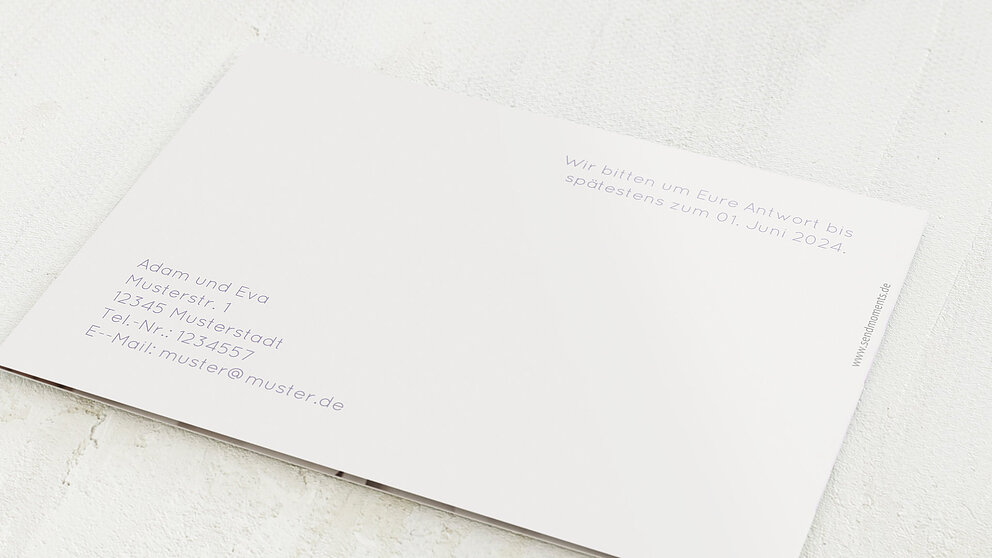 Wir bitten um Eure Antwort bis
spätestens zum 01. Juni 2024.
Adam und Eva
Musterstr. 1
12345 Musterstadt
Tel.-Nr.: 1234557
E--Mail: muster@muster.de
www.sendmoments.de